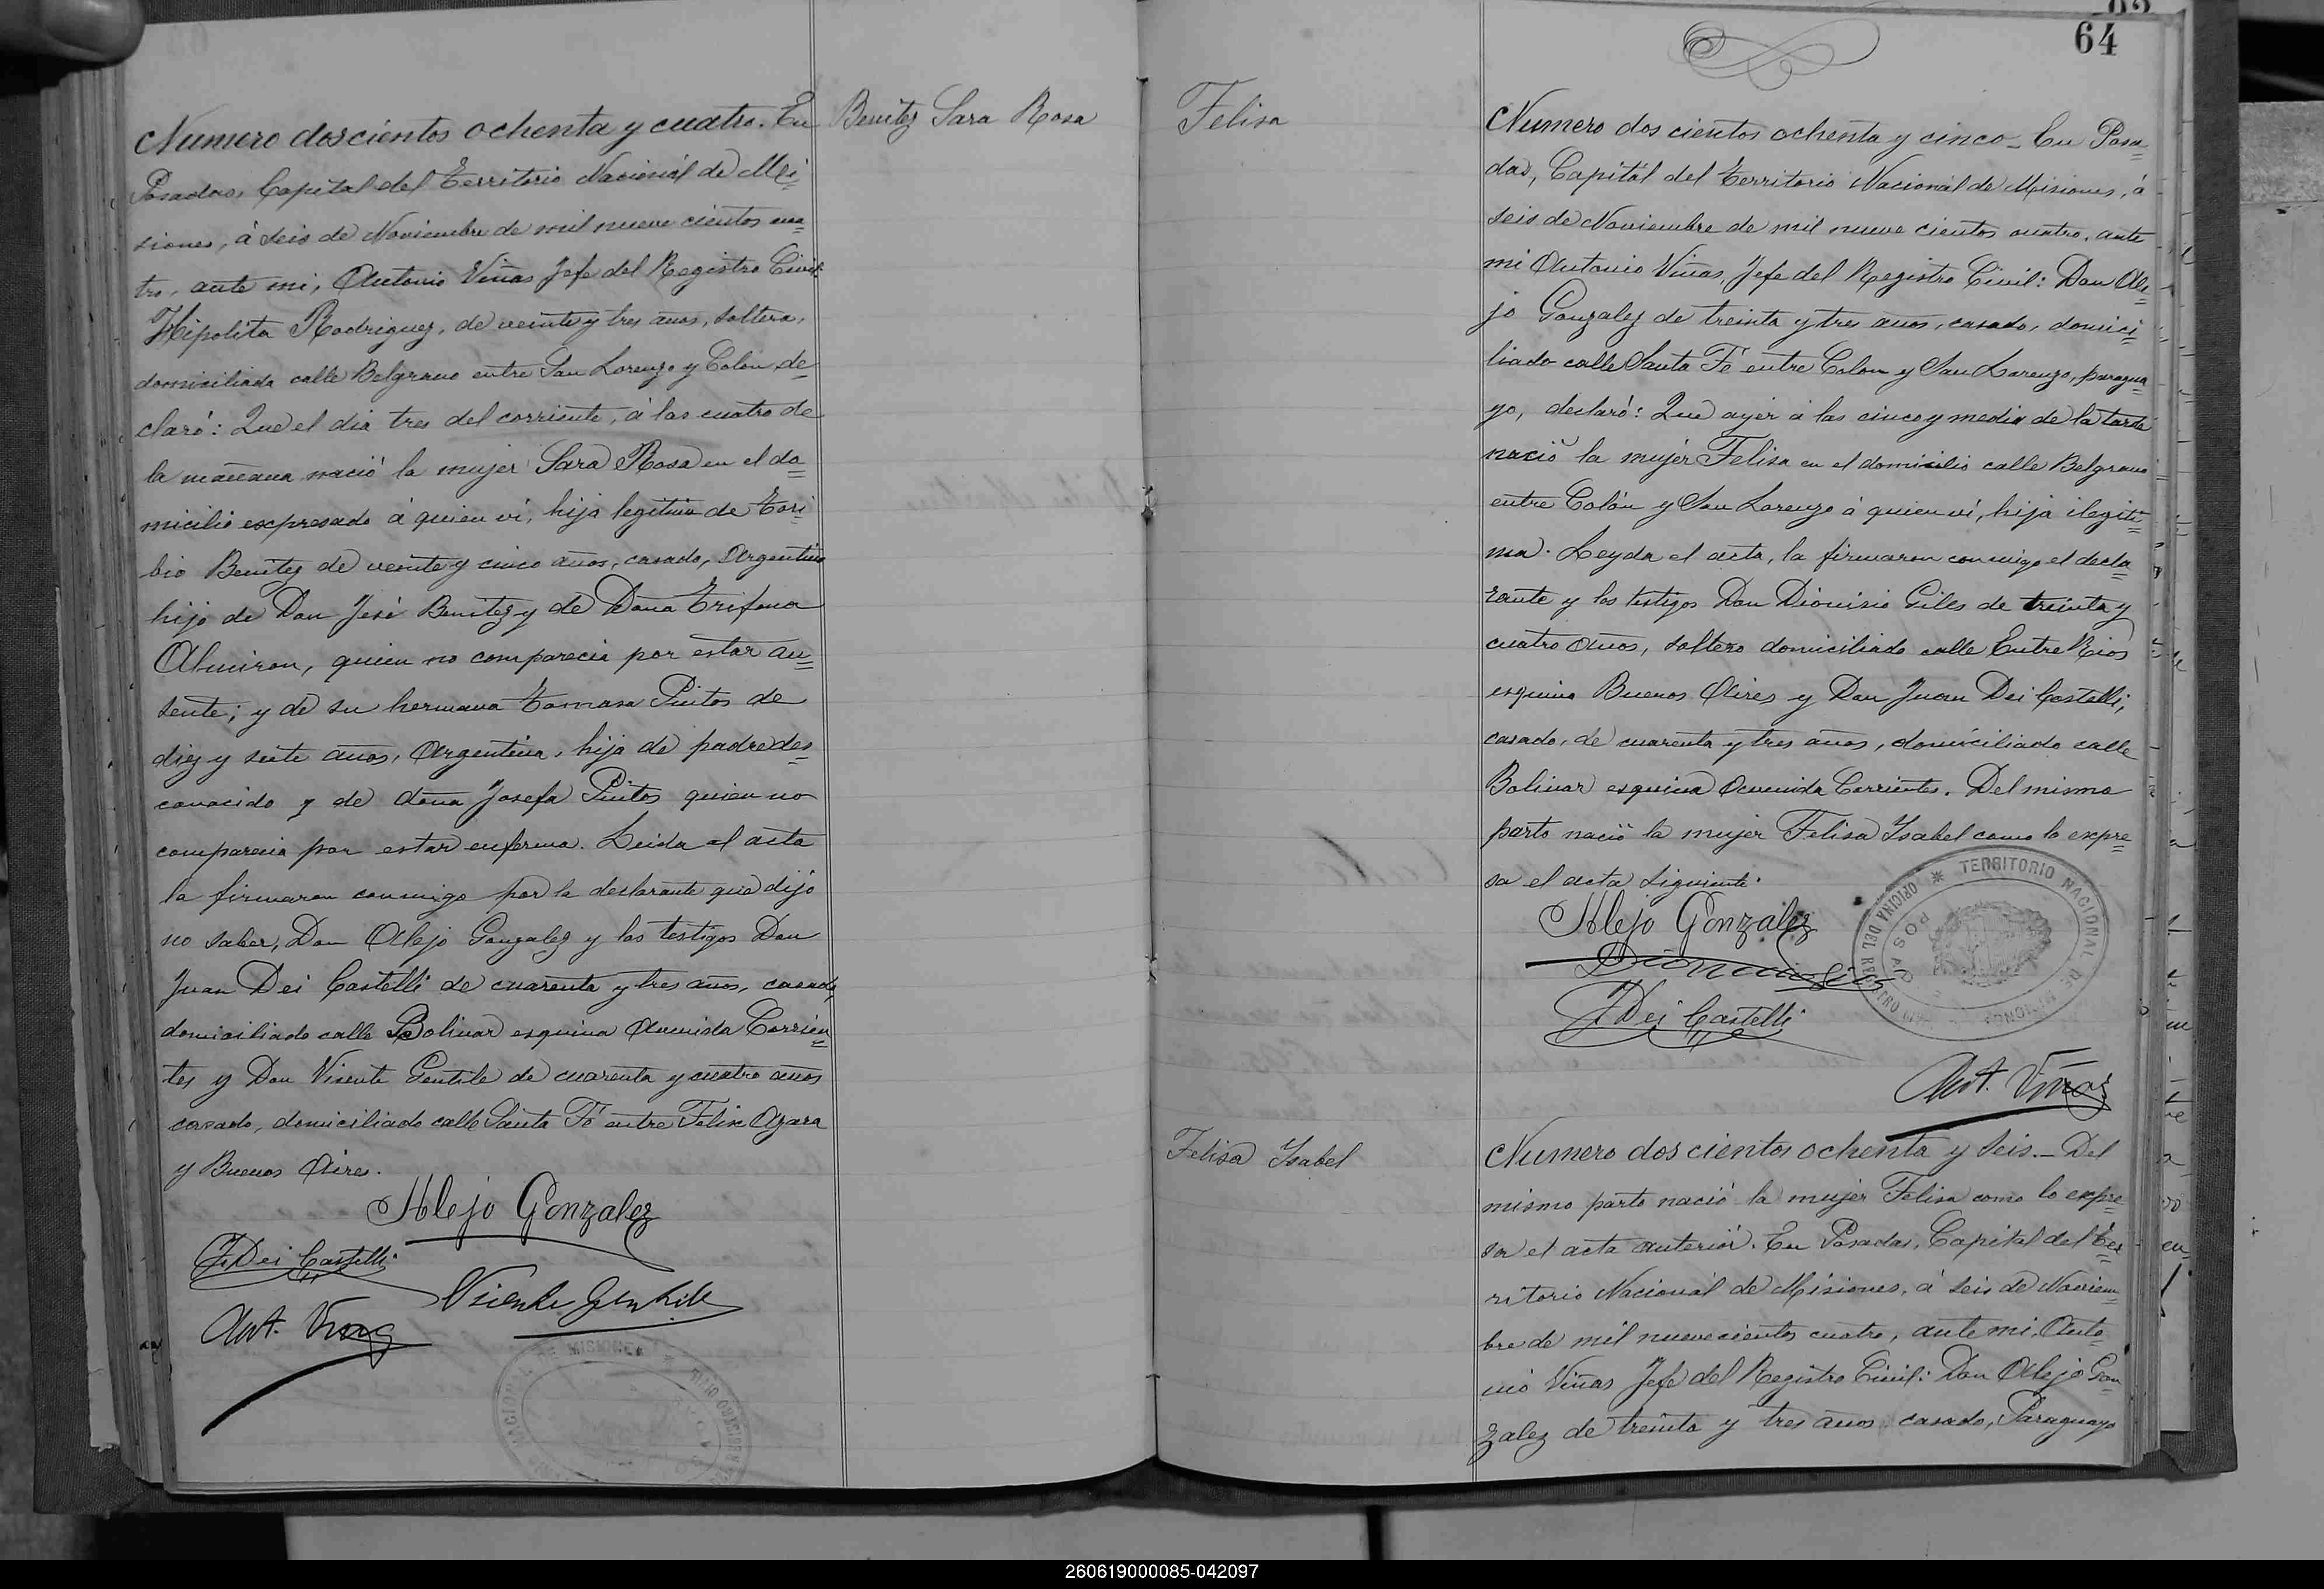 Numero doscientos ochenta y cuatro. En
Posadas, Capital del Territorio Nacional de Mi=
siones, á seis de Noviembre de mil nueve cientos cua=
tro, ante mi, Antonio Viñas Jefe del Registro Civil:
Hipolita Rodriguez, de veinte y tres años, soltera,
domiciliada calle Belgrano entre San Lorenzo y Colon de=
claró: Que el dia tres del corriente, á las cuatro de
la mañana nació la mujer Sara Rosa en el do=
micilio expresado á quien ví, hija legitima de Tori=
bio Benitez de veinte y cinco años, casado, Argentino
hijo de Don José Benitez y de Doña Trifona
Almiron, quien no comparecia por estar au=
sente; y de su hermana Tomasa Pintos de
diez y siete años, Argentina, hija de padre des=
conocido y de doña Josefa Pintos quien no
comparecia por estar enferma. Leida el acta
la firmaron conmigo por la declarante que dijo
no saber, Don Alejo Gonzalez y los testigos Don
Juan Dei Castelli de cuarenta y tres años, casado,
domiciliado calle Bolivar esquina Avenida Corrien=
tes y Don Vicente Gentile de cuarenta y cuatro años
casado, domiciliado calle Santa Fé entre Felix Azara
y Buenos Aires.
Alejo Gonzalez
J Dei Castelli
Vicente Gentile
Ant. Viñas
Benitez Sara Rosa
64
Felisa
Numero dos cientos ochenta y cinco_ En Posa=
das, Capital del Territorio Nacional de Misiones, á
seis de Noviembre de mil nueve cientos cuatro, ante
mi Antonio Viñas, Jefe del Registro Civil: Don Ale=
jo Gonzalez de treinta y tres años, casado, domici=
liado calle Santa Fé entre Colon y San Lorenzo, paragua=
yo, declaró: Que ayer á las cinco y media de la tarde
nació la mujer Felisa en el domicilio calle Belgrano
entre Colón y San Lorenzo á quien ví, hija ilegiti=
ma. Leyda el acta, la firmaron conmigo el decla=
rante y los testigos Don Dionisio Giles de treinta y
cuatro años, soltero domiciliado calle Entre Rios
esquina Buenos Aires y Don Juan Dei Castelli,
casado, de cuarenta y tres años, domiciliado calle
Bolivar esquina Avenida Corrientes. Del mismo
parto nació la mujer Felisa Isabel como lo expre=
sa el acta siguiente.
Alejo Gonzalez
J Dei Castelli
TERRITORIO NACIONAL DE MISIONES
OFICINA DEL REGISTRO CIVIL
POSADAS
Ant. Viñas
Felisa Isabel
Numero dos cientos ochenta y seis._ Del
mismo parto nació la mujer Felisa como lo expre=
sa el acta anterior. En Posadas, Capital del Ter=
ritorio Nacional de Misiones, á seis de Noviem=
bre de mil nuevecientos cuatro, ante mi, Anto=
nio Viñas Jefe del Registro Civil: Don Alejo Gon=
zalez de treinta y tres años, casado, Paraguayo
260619000085-042097